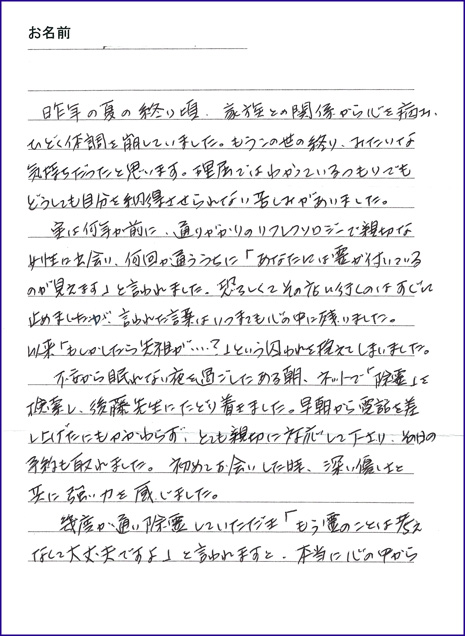 お名前
昨年の夏の終り頃、家族との関係から心を病み、
ひどく体調を崩していました。もうこの世の終り、みたいな
気持ちだったと思います。理屈ではわかっているつもりでも
どうしても自分を納得させられない苦しみがありました。
実は何年か前に、通りがかりのリフレクソロジーで親切な
女性に出会い、何回か通ううちに「あなたには霊が付いている
のが見えます」と言われました。恐ろしくてその店に行くのはすぐに
止めましたが、言われた言葉はいつまでも心の中に残りました。
以来「もしかしたら先祖が……?」という囚われを抱えてしまいました。
不安から眠れない夜を過ごしたある朝、ネットで「除霊」を
検索し、後藤先生にたどり着きました。早朝から電話を差
し上げたにもかかわらず、とても親切に対応して下さり、その日の
予約も取れました。初めてお会いした時、深い優しさと
共に強い力を感じました。
幾度か通い除霊していただき「もう霊のことは考え
なくて大丈夫ですよ」と言われますと、本当に心の中から